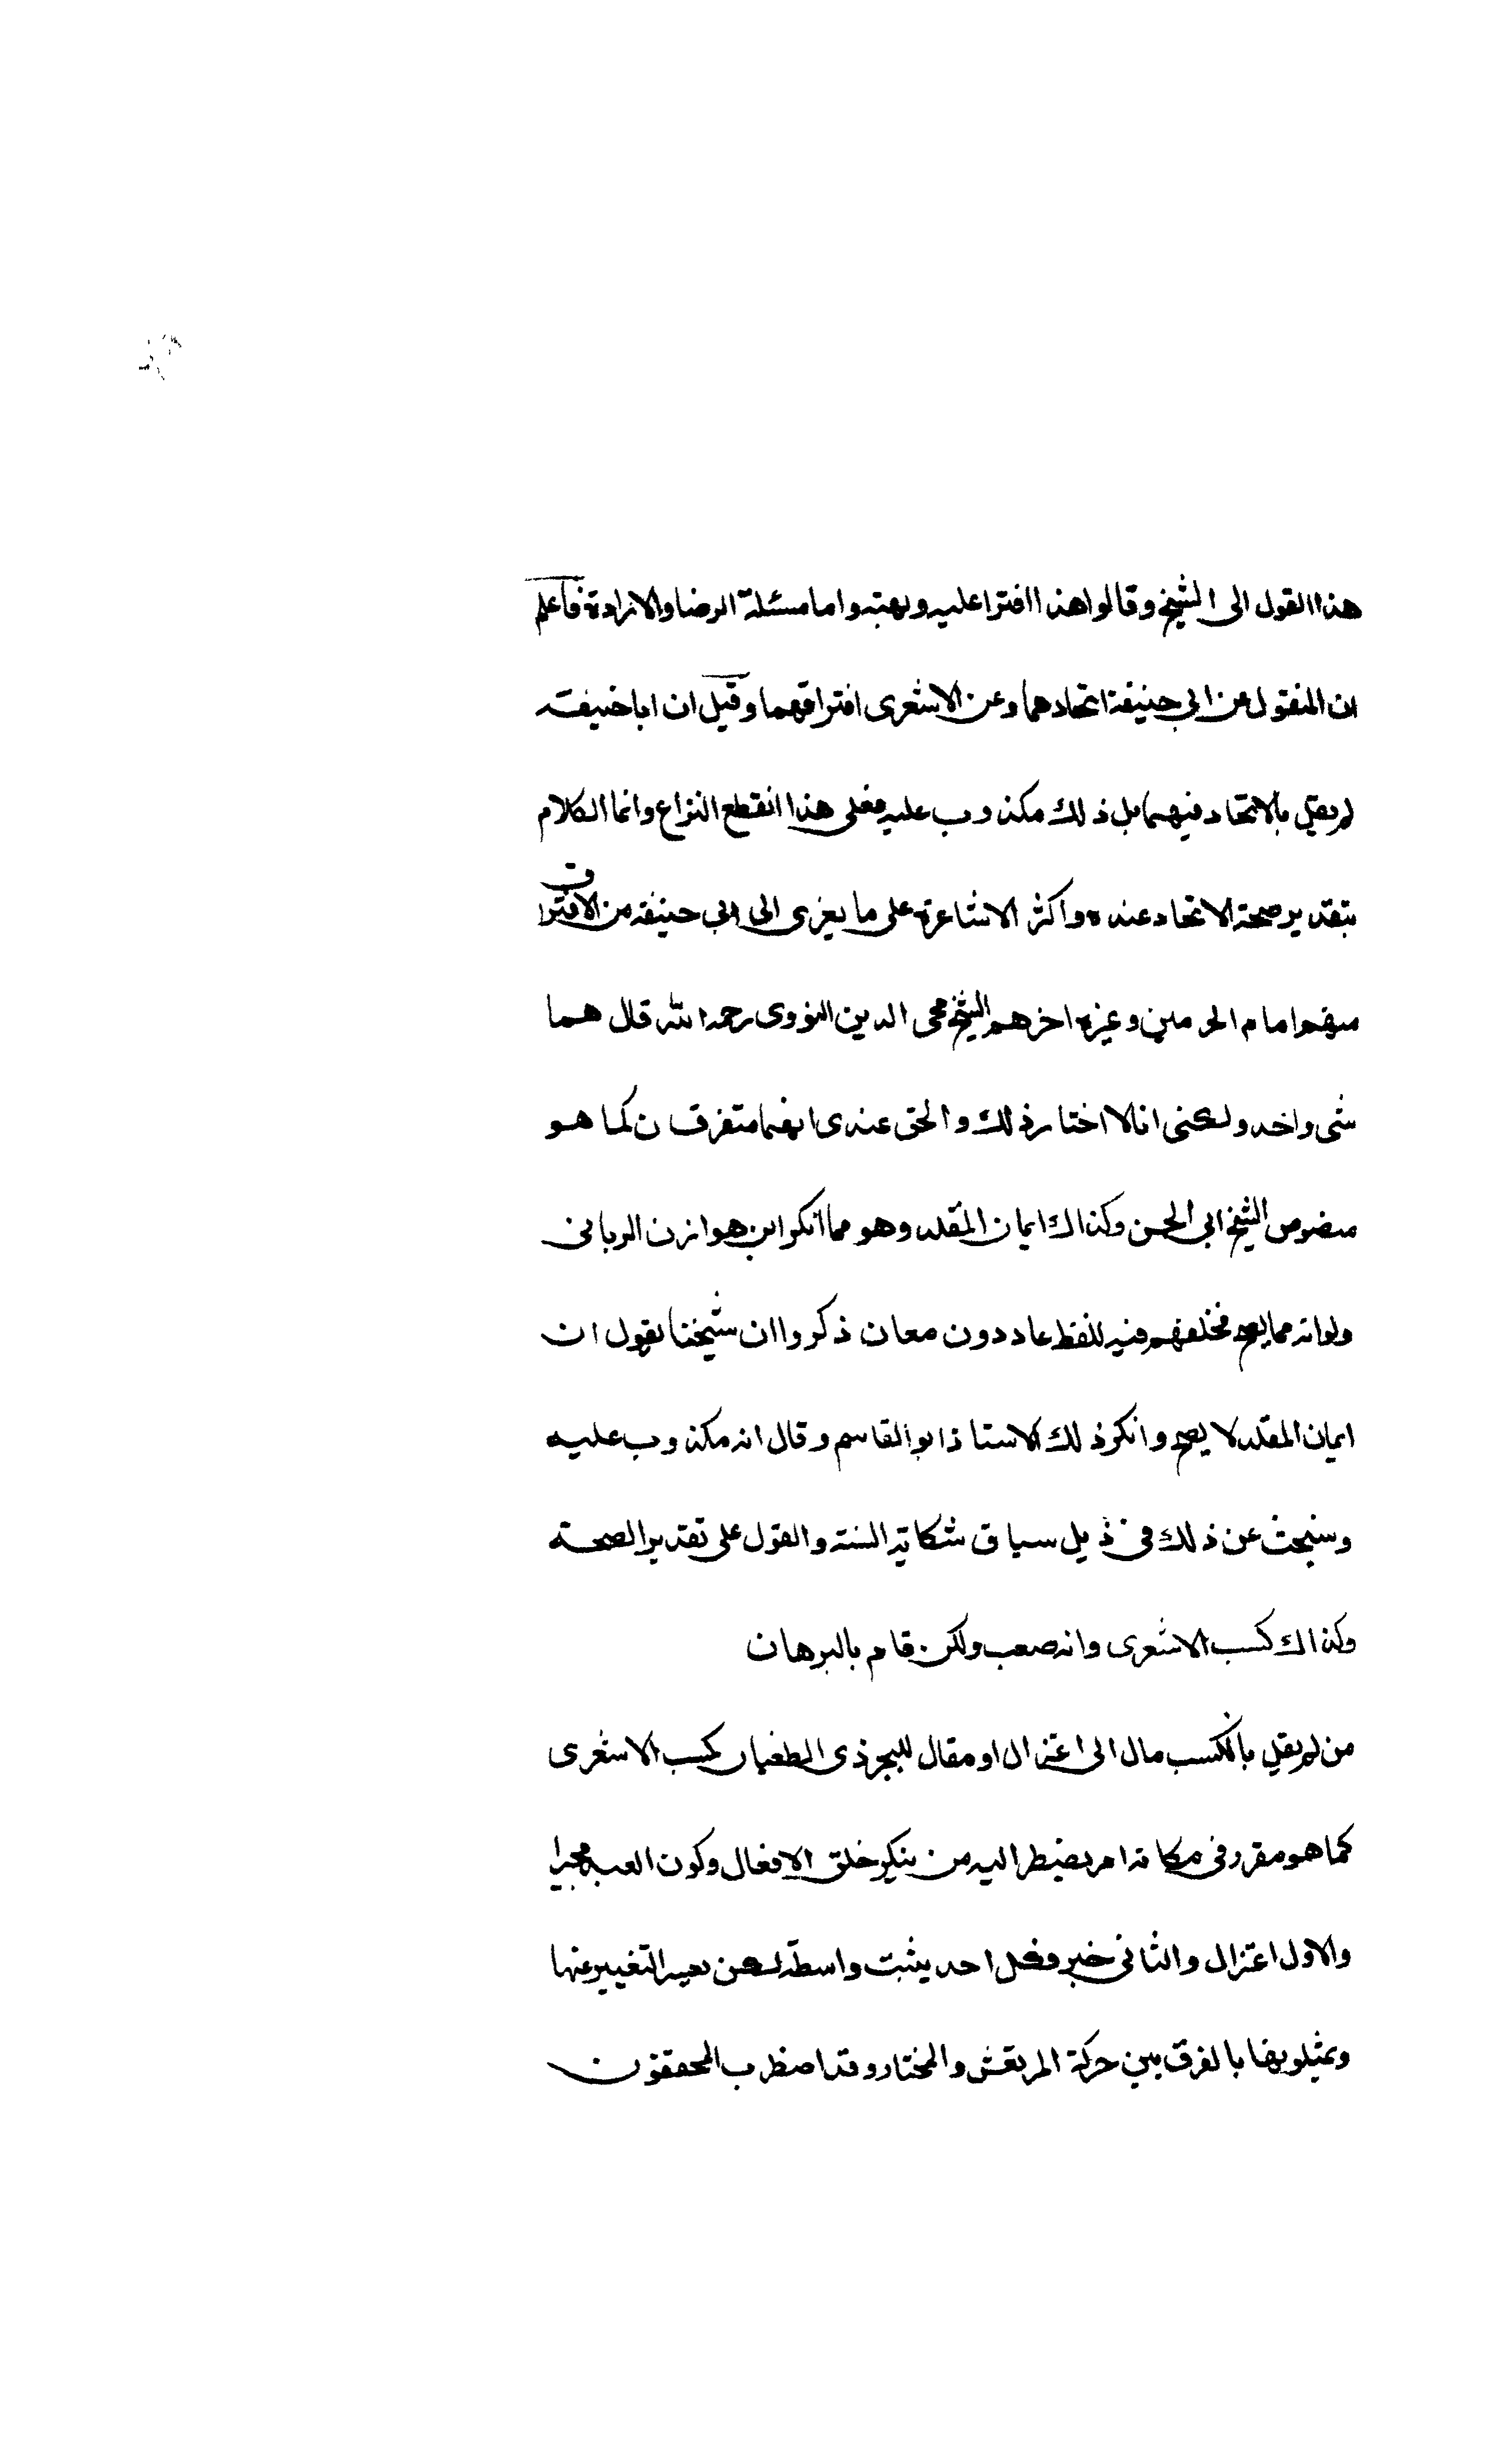 هذا القول الى الشيخ وقالوا هذا افترا عليه وبهته واما مسئلة الرضا والارادة فاعلم
ان المنقول عن ابي حنيفة اتحادهما وعن الاشعرى افتراقهما وقيل ان ابا حنيفة
لم يقل بالاتحاد فيهما بل ذلك مكذوب عليه فعلى هذا انقطع النزاع وانما الكلام
بتقدير صحة الاتحاد عنده واكثر الاشاعرة على ما يعزى الى ابي حنيفة من الافتراق
منهم امام الحرمين وغيره اخرهم الشيخ محى الدين النووى رحمه الله قال هما
شى واحد ولكنى انا لا اختار ذلك والحق عندى انهما متفرقان كما هو
منصوص الشيخ ابي الحسن وكذاك ايمان المقلد وهو مما انكر ابن هوازن الربانى
ولو انه مما يصح فخلفهم فيه للفظ عاد دون معان ذكروا ان شيخنا يقول ان
ايمان المقلد لا يصح وانكر ذلك الاستاذ ابو القاسم وقال انه مكذوب عليه
وسنبحث عن ذلك فى ذيل سياق شكاية السنة والقول على تقدير الصحة
وكذاك كسب الاشعرى وانه صعب ولكن قام بالبرهان
من لم يقل بالكسب مال الى اعتزال او مقال للجبر ذى الطغيان كسب الاشعرى
كما هو مقرر فى مكانه امر يضطر اليه من ينكر خلق الافعال وكون العبد مجبرا
والاول اعتزال والثانى جبر فكل احد يثبت واسطة لكن يعسر التعبير عنها
ويمثلونها بالفرق بين حركة المرتعش والمختار وقد اضطرب المحققون